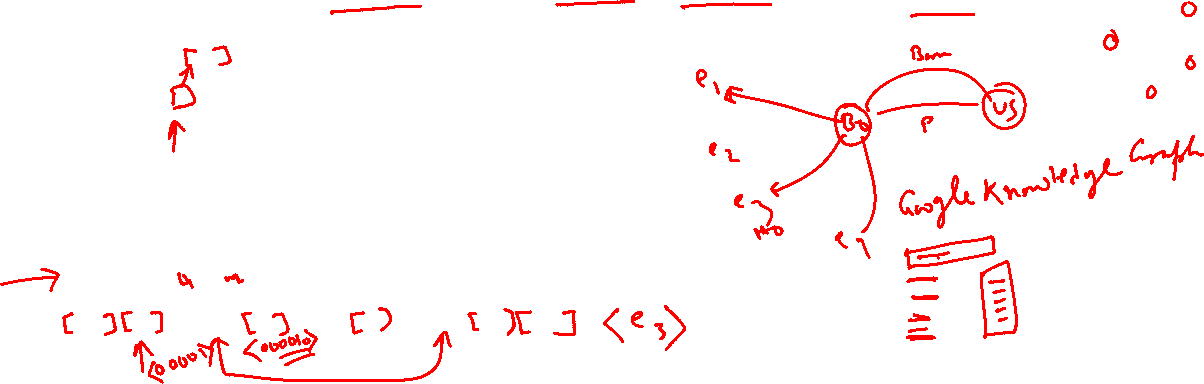 [ ]
D
Born
e1
Bo
US
P
e2
e3
e4
Google Knowledge Graph
[ ][ ] [ ] [ ] [ ][ ] <e3>
<000010>